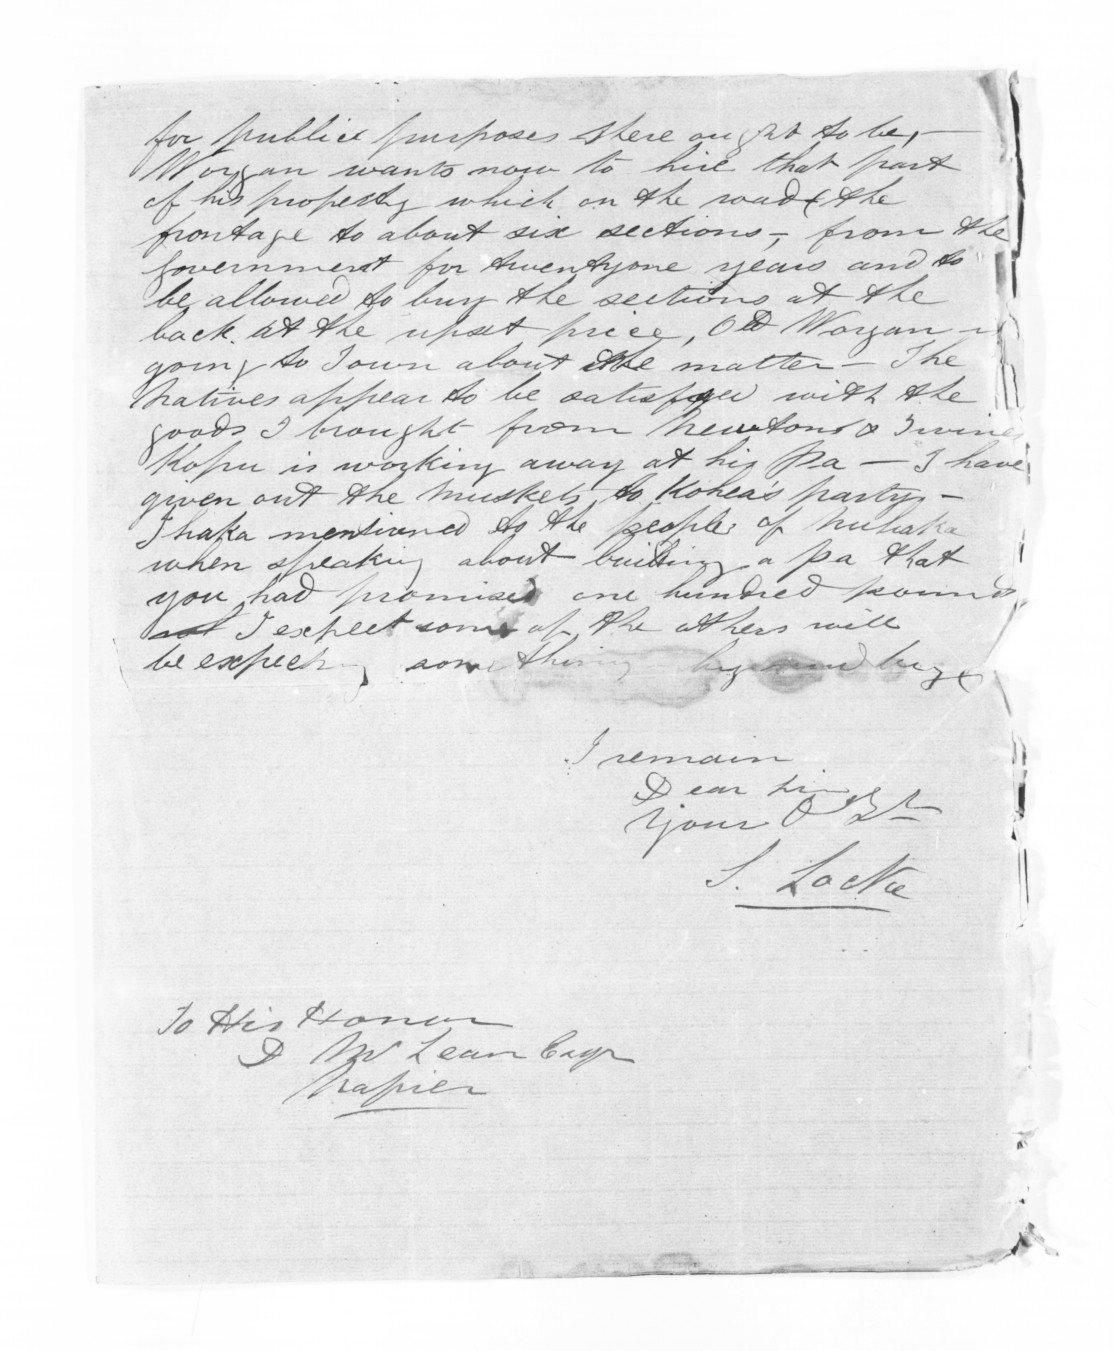 for publick purposes there ought to be, —
Worgan wants now to hire that part
of his property which on the road & the
frontage to about six sections —, from the
Government for twentyone years and to
be allowed to buy the sections at the
back at the upset price, Old Worgan is
going to Town about the matter — The
Natives appear to be satisfyed with the
goods I brought from Newtons & Irvines
Kopu is working away at his Pa — I have
given out the Muskets to Kohea's party, —
Ihaka mentioned to the people of Nuhaka
when speaking about building a Pa that
you had promised one hundred pounds
I expect some of the others will
be expecting something by and by
I remain
Dear Sir
Your Obt
S. Locke
To His Honor
D McLean Esqr
Napier